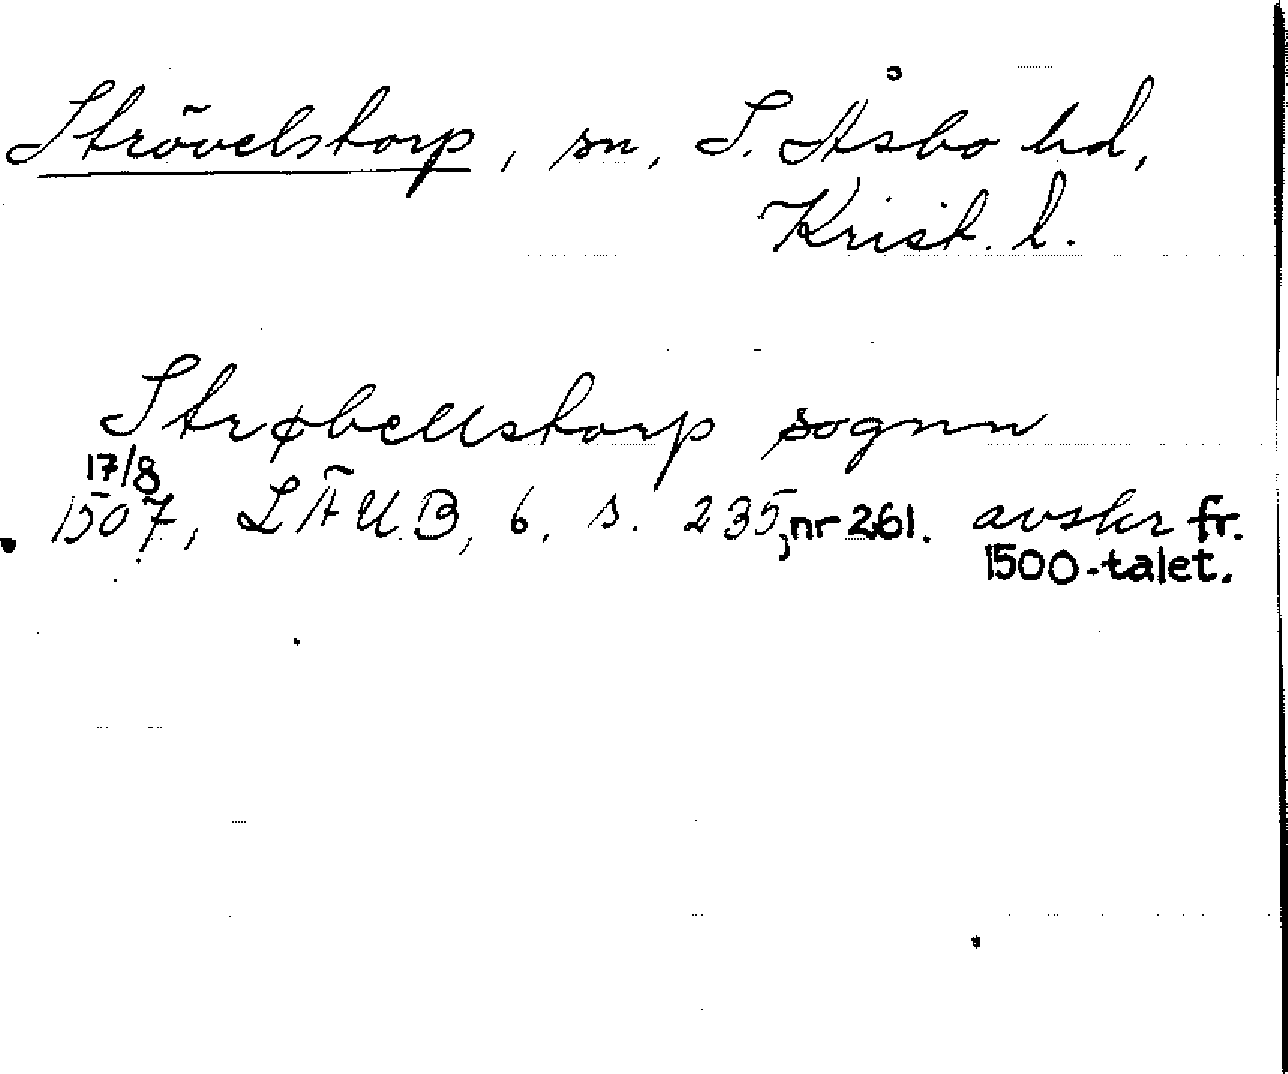 Strövelstorp, sn, S. Åsbo hd,
Krist. l.
Strøbellstorp sognn
17/8
1507, LÄUB, 6, s. 235, nr 261. avskr fr.
1500-talet.